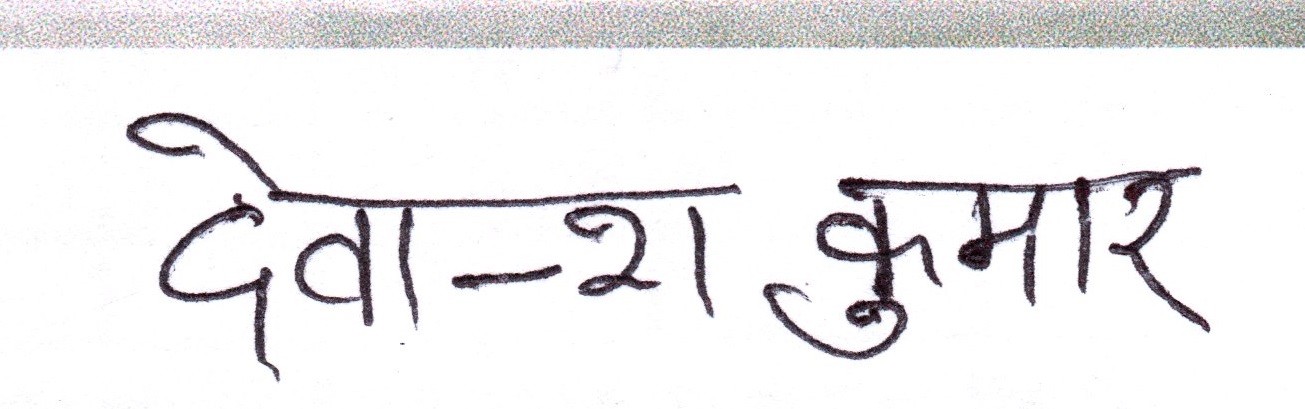 देवान्श कुमार